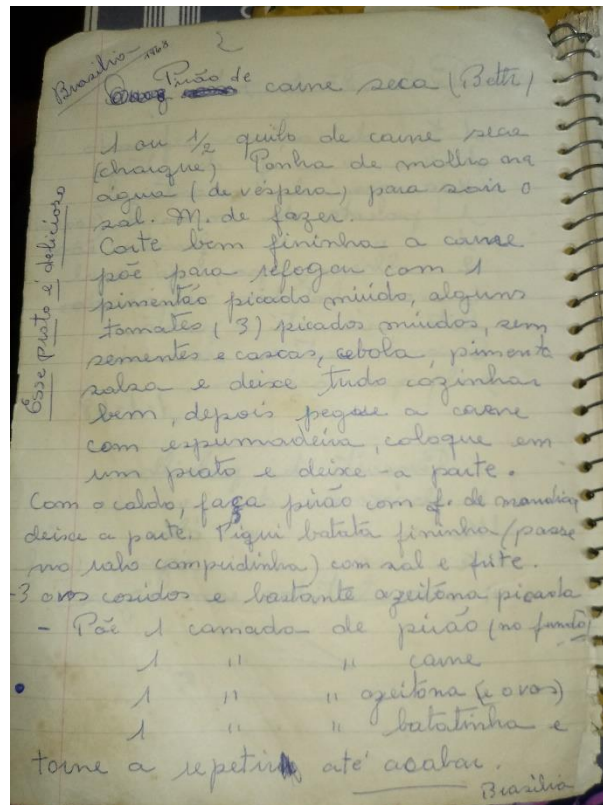 Brasília - 1968
Pirão de carne seca (Beth)
1 ou 1/2 quilo de carne seca
(charque) Ponha de molho na
água (de véspera) para sair o
sal. M. de fazer.
Corte bem fininha a carne
põe para refogar com 1
pimentão picado miúdo, alguns
tomates (3) picados miudos, sem
sementes e cascas, cebola, pimenta
salsa e deixe tudo cozinhar
bem, depois pegue a carne
com espumadeira, coloque em
um prato e deixe-a parte.
Com o caldo, faça pirão com f. de mandioca
deixe a parte. Piqui batata fininha (passe
no ralo compridinha) com sal e frite.
-3 ovos cosidos e bastante azeitona picada
- Põe 1 camada de pirão (no fundo)
1 " " carne
1 " " azeitona (e ovos)
1 " " batatinha e
torne a repetir até acabar.
Brasília
Esse prato é delicioso